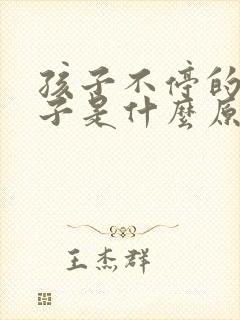 孩子不停的
子是什麼原
王杰群